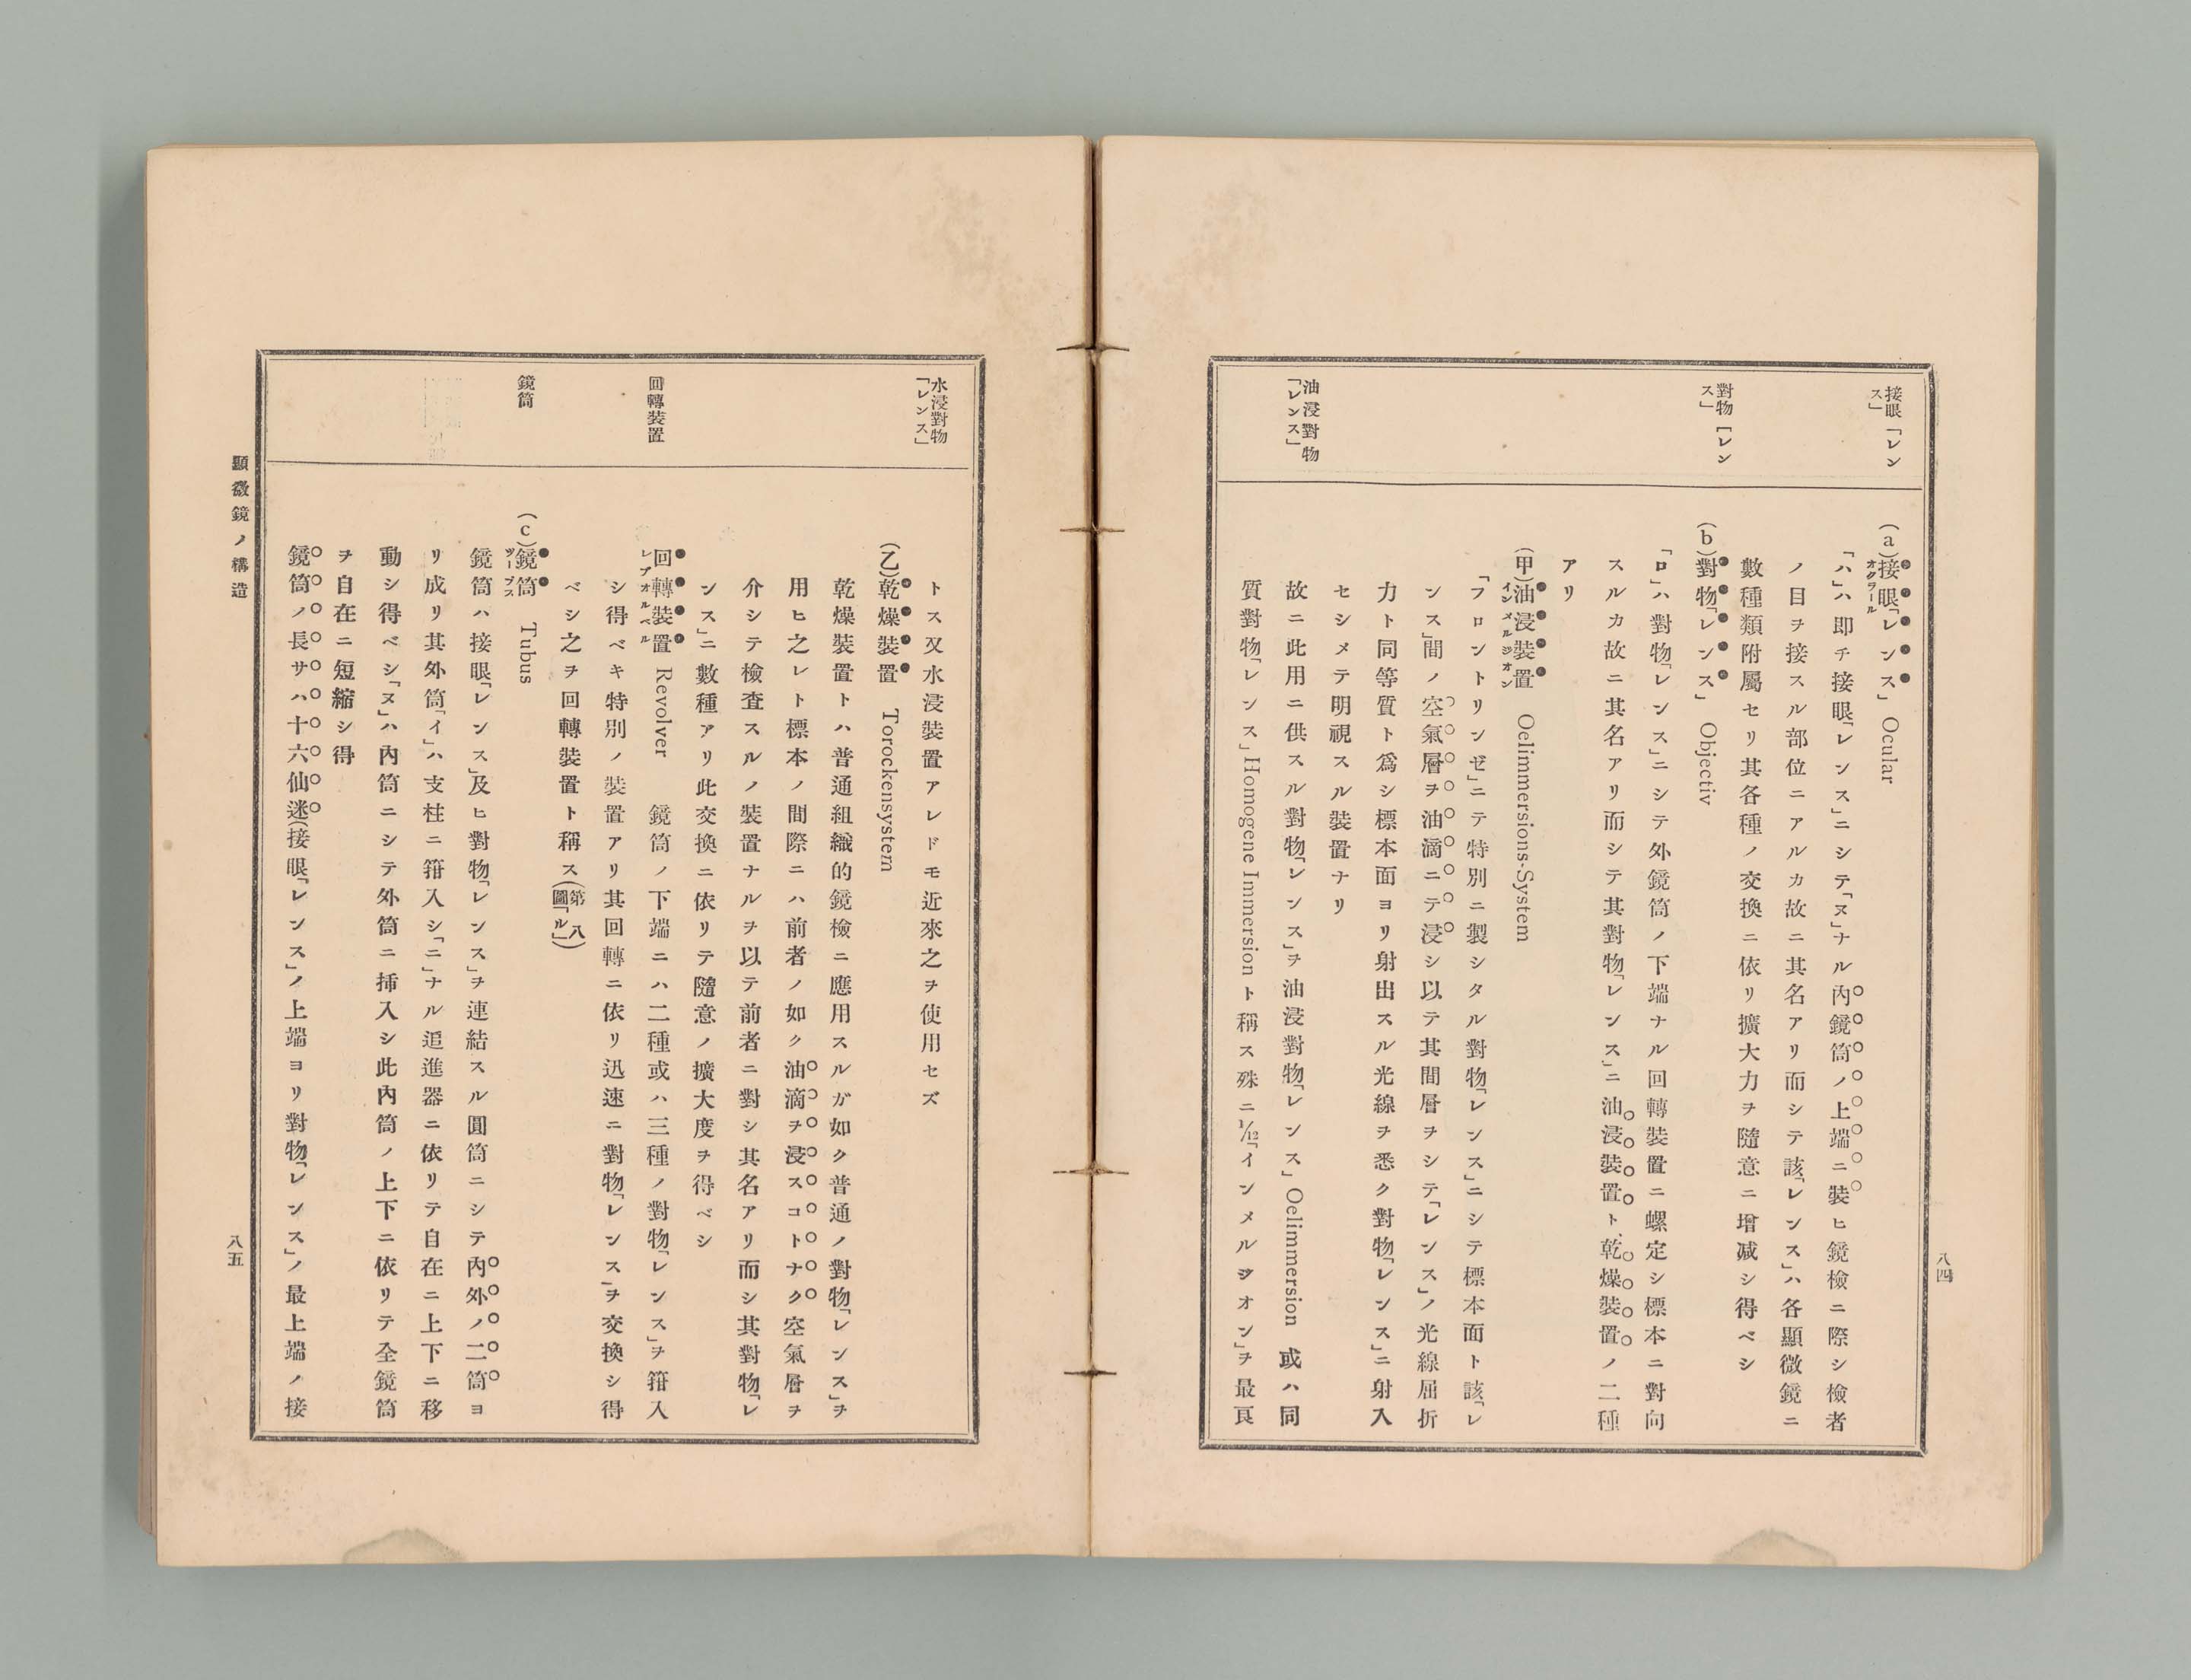 接眼「レン
ス」
對物「レン
ス」
油浸對物
「レンス」
(a)接眼「レンス」 Ocular
オクラール
「ハ」ハ即チ接眼「レンス」ニシテ「ヌ」ナル內鏡筒ノ上端ニ裝ヒ鏡檢ニ際シ檢者
ノ目ヲ接スル部位ニアルカ故ニ其名アリ而シテ該「レンス」ハ各顯微鏡ニ
數種類附屬セリ其各種ノ交換ニ依リ擴大力ヲ隨意ニ增減シ得ベシ
(b)對物「レンス」 Objectiv
「ロ」ハ對物「レンス」ニシテ外鏡筒ノ下端ナル回轉裝置ニ螺定シ標本ニ對向
スルカ故ニ其名アリ而シテ其對物「レンス」ニ油浸裝置ト乾燥裝置ノ二種
アリ
(甲)油浸裝置 Oelimmersions-System
インメルジオン
「フロントリンゼ」ニテ特別ニ製シタル對物「レンス」ニシテ標本面ト該「レ
ンス」間ノ空氣層ヲ油滴ニテ浸シ以テ其間層ヲシテ「レンス」ノ光線屈折
力ト同等質ト爲シ標本面ヨリ射出スル光線ヲ悉ク對物「レンス」ニ射入
セシメテ明視スル裝置ナリ
故ニ此用ニ供スル對物「レンス」ヲ油浸對物「レンス」Oelimmersion 或ハ同
質對物「レンス」Homogene Immersion ト稱ス殊ニ1/12「インメルジオン」ヲ最良
八四
水浸對物
「レンス」
回轉裝置
鏡筒
トス又水浸裝置アレドモ近來之ヲ使用セズ
(乙)乾燥裝置 Torockensystem
乾燥裝置トハ普通組織的鏡檢ニ應用スルガ如ク普通ノ對物「レンス」ヲ
用ヒ之レト標本ノ間際ニハ前者ノ如ク油滴ヲ浸スコトナク空氣層ヲ
介シテ檢査スルノ裝置ナルヲ以テ前者ニ對シ其名アリ而シ其對物「レ
ンス」ニ數種アリ此交換ニ依リテ隨意ノ擴大度ヲ得ベシ
回轉裝置 Revolver 鏡筒ノ下端ニハ二種或ハ三種ノ對物「レンス」ヲ箝入
レブオルベル
シ得ベキ特別ノ裝置アリ其回轉ニ依リ迅速ニ對物「レンス」ヲ交換シ得
ベシ之ヲ回轉裝置ト稱ス(第八圖「ル」)
(c)鏡筒 Tubus
ツーブス
鏡筒ハ接眼「レンス」及ヒ對物「レンス」ヲ連結スル圓筒ニシテ內外ノ二筒ヨ
リ成リ其外筒「イ」ハ支柱ニ箝入シ「ニ」ナル追進器ニ依リテ自在ニ上下ニ移
動シ得ベシ「ヌ」ハ內筒ニシテ外筒ニ挿入シ此內筒ノ上下ニ依リテ全鏡筒
ヲ自在ニ短縮シ得
鏡筒ノ長サハ十六仙迷(接眼「レンス」ノ上端ヨリ對物「レンス」ノ最上端ノ接
顯微鏡ノ構造
八五